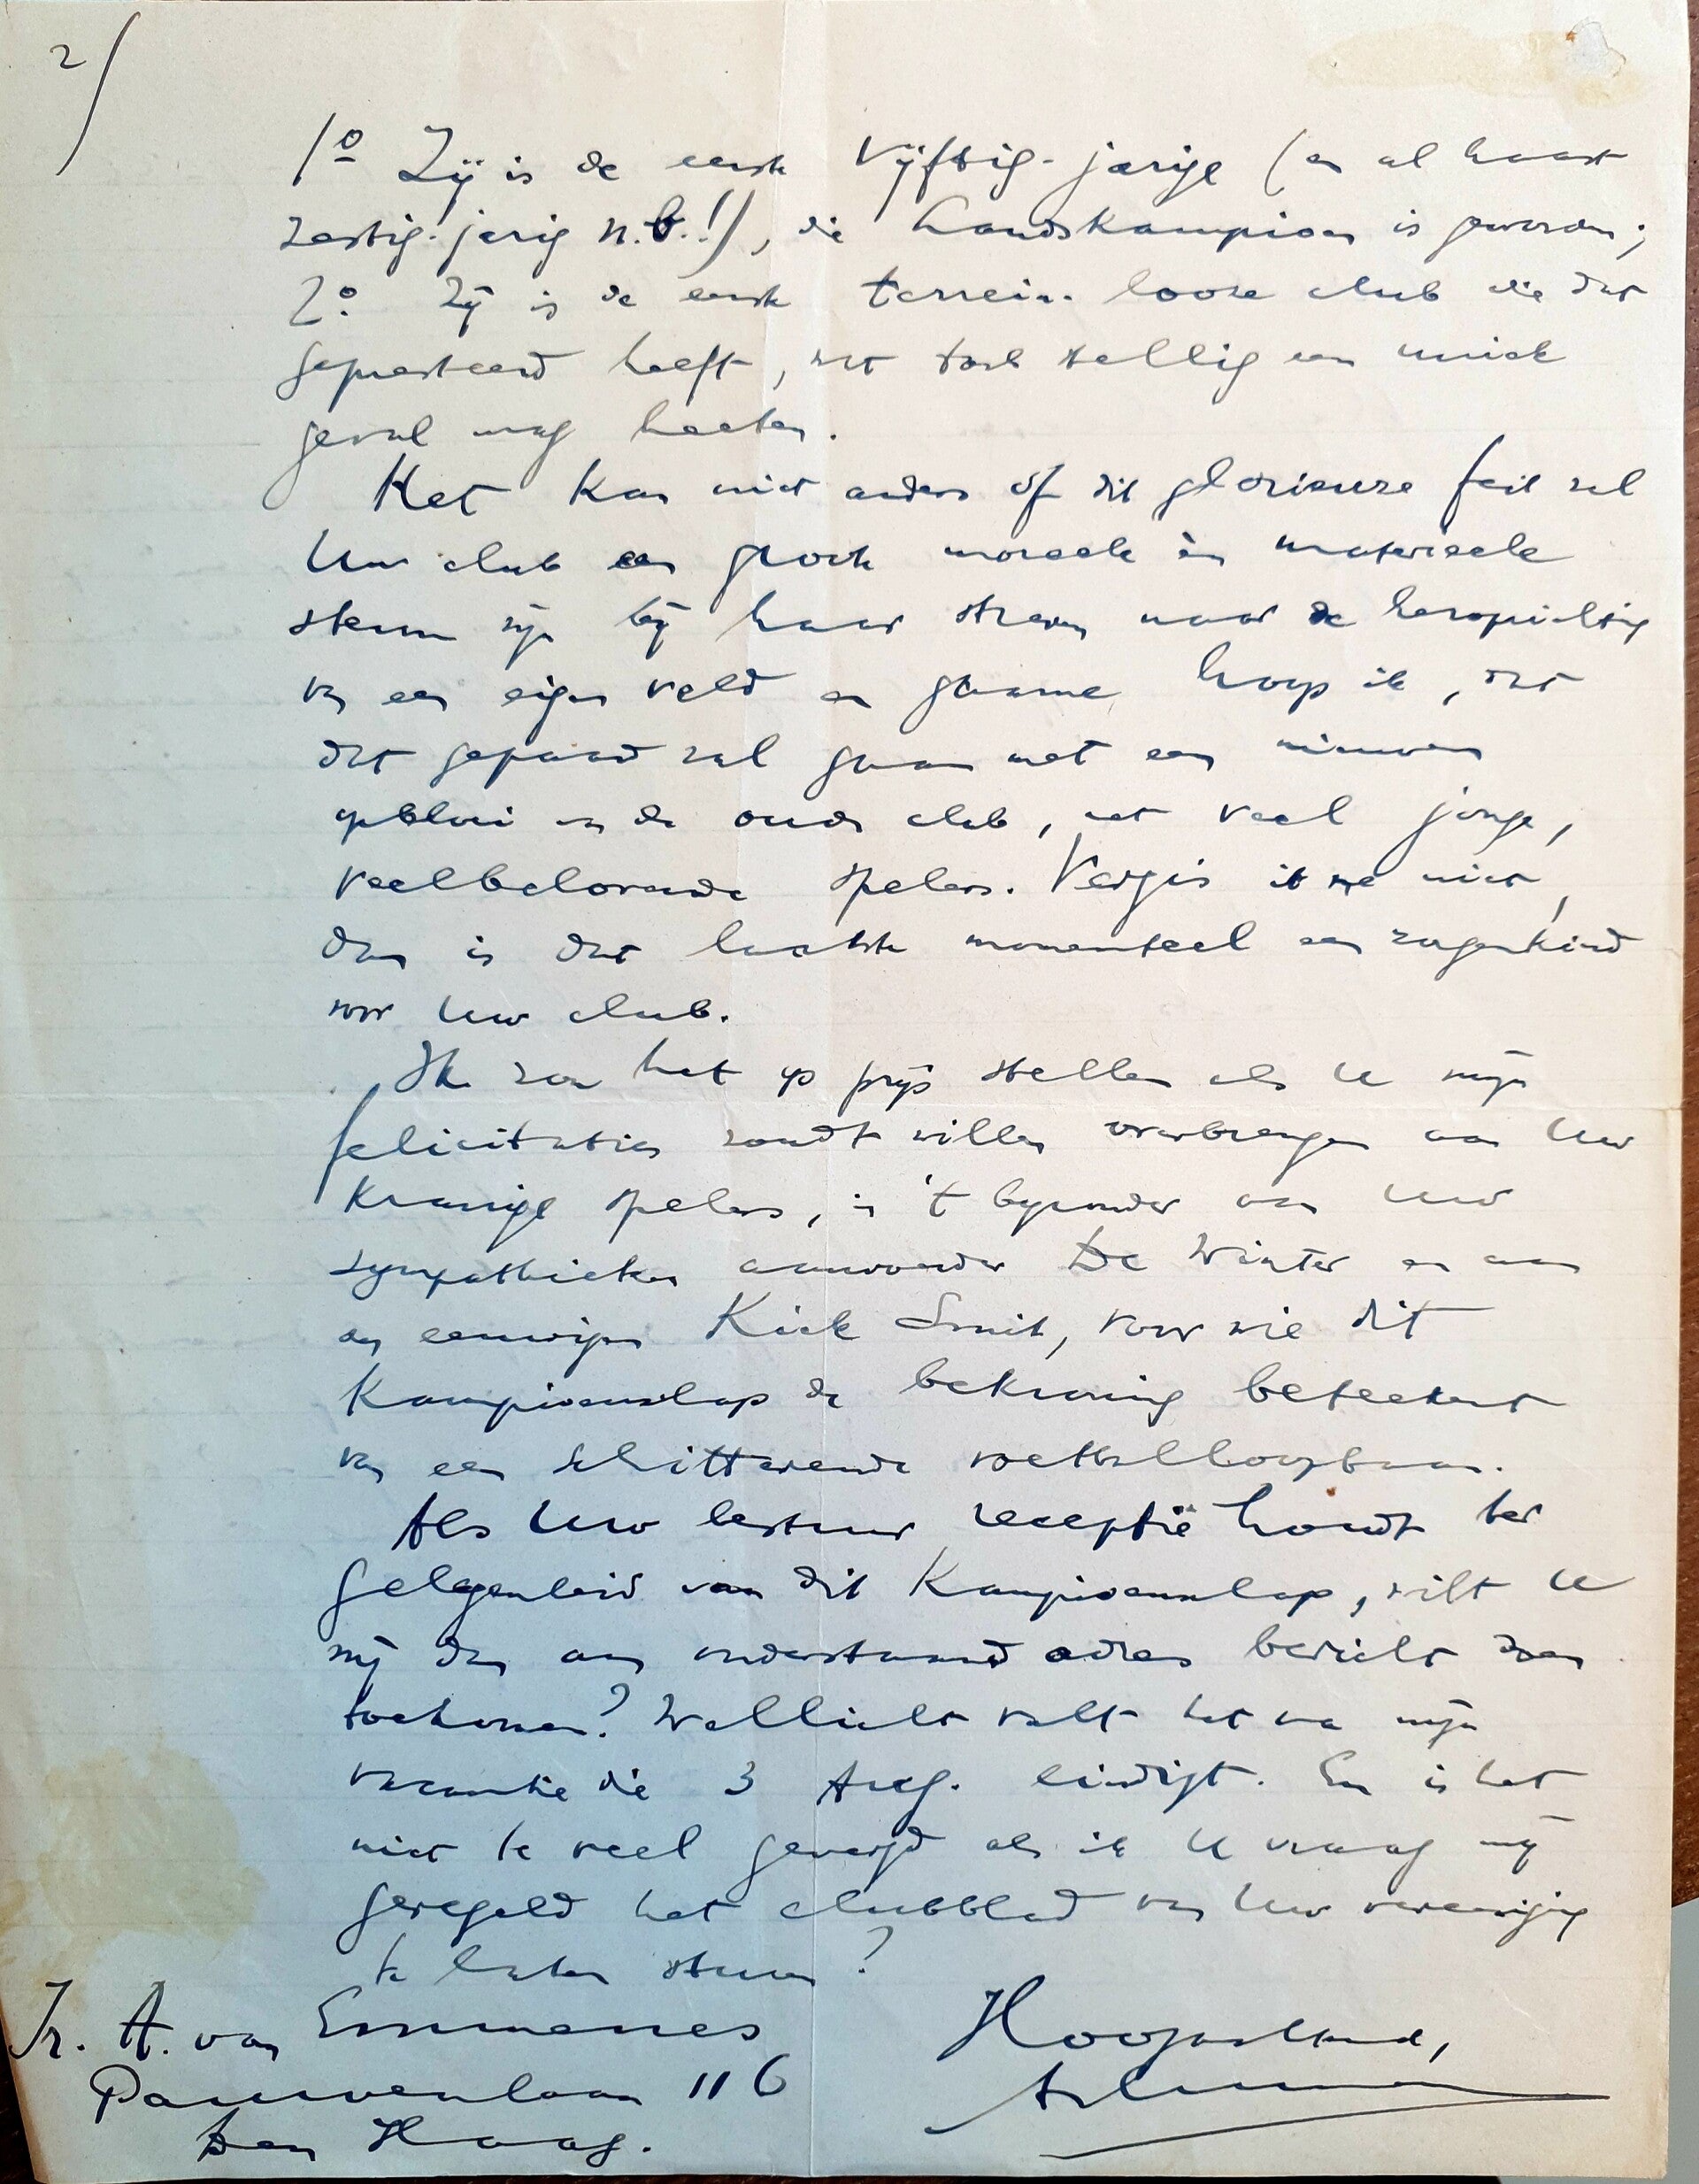 2/
1º Zij is de eerste Vijftig-jarige (en al haast
zestig-jarig n.b.!), die landskampioen is geworden;
2º Zij is de eerste terrein-looze club die dat
gepresteerd heeft, wat toch stellig een uniek
geval mag heeten.
Het kan niet anders of dit glorieuze feit zal
Uw club een groote moreele èn materieele
steun zijn bij haar streven naar de
van een eigen veld en gaarne hoop ik, dat
dat gepaard zal gaan met een nieuwen
opbloei van de oude club, met veel jonge,
veelbelovende spelers. Vergis ik me niet,
dan is dat laatste momenteel een zorgenkind
voor Uw club.
Ik zou het op prijs stellen als U mijn
felicitaties zoudt willen overbrengen aan Uw
kranige spelers, in 't bijzonder aan Uw
sympathieken aanvoerder De Winter en aan
den eeuwigen Kick Smit, voor wie dit
Kampioenschap de bekroning beteekent
van een schitterende voetballoopbaan.
Als Uw bestuur receptië houdt ter
gelegenheid van dit Kampioenschap, wilt U
mij dan aan onderstaand adres bericht doen
toekomen? Wellicht valt het na mijn
vacantie die 3 Aug. eindigt. En is het
niet te veel gevergd als ik U vraag mij
geregeld het clubblad van Uw vereeniging
te laten sturen?
Hoogachtend,
Ir. A. van Emmenes
Pauwenlaan 116
Den Haag.